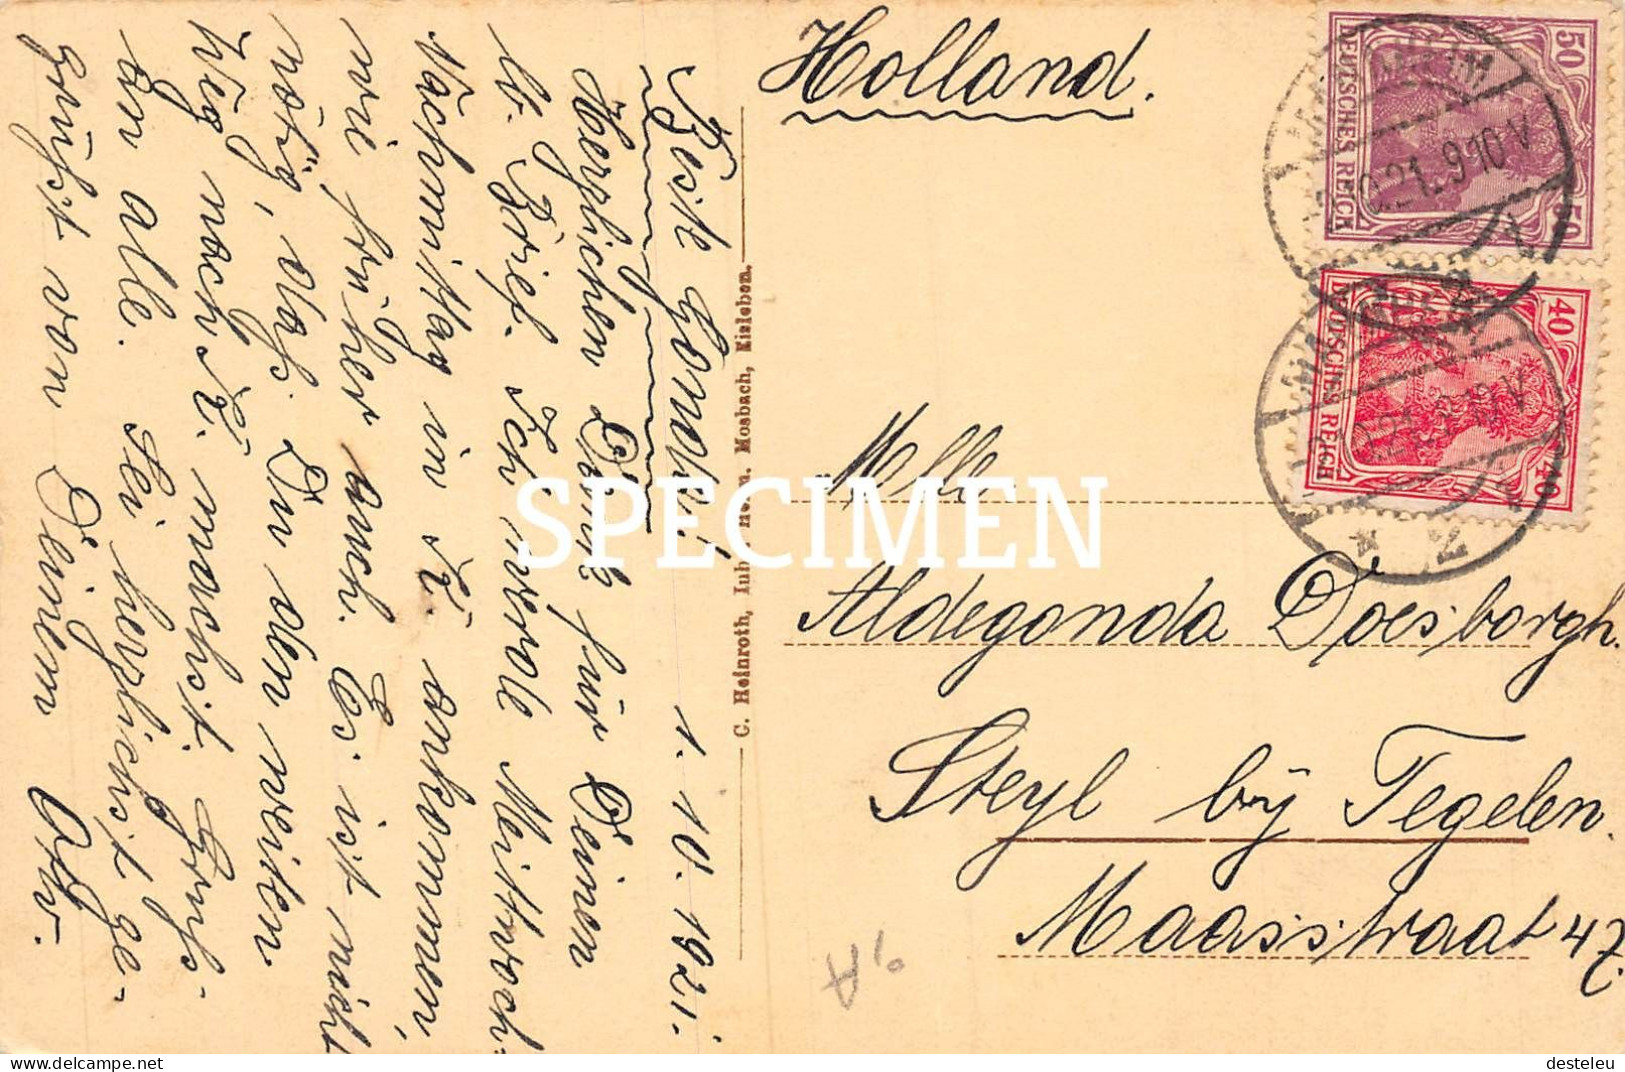 Beste Gonda!
1. 10. 1921.
Herzlichen Dank für Deinen
lb. Brief. Ich werde Mittwoch-
Nachmittag in K. ankommen,
wie früher auch. Es ist nicht
nötig, dass Du den weiten
Weg nach K. machst. Grüß-
an alle. Sei herzlichst ge-
grüßt von Deinem
C. Heinroth, Inh. Herm. Mosbach, Eisleben.
Holland.
Melle
Aldegonda Doesborgh.
Steyl bij Tegelen.
Maasstraat 47.
50 DEUTSCHES REICH 50
40 DEUTSCHES REICH 40
21. 9-10 V
* 2
SPECIMEN
delcampe.net
desteleu